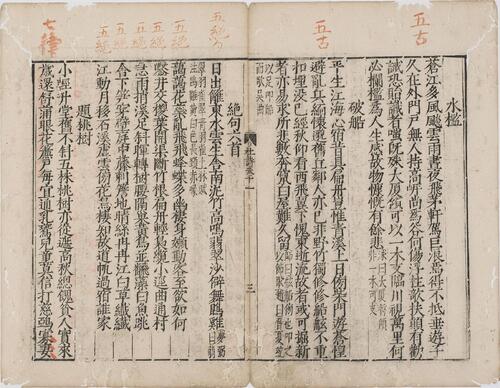 五古
水檻
蒼江多風飈雲雨晝夜飛茅軒駕巨浪焉得不低垂遊子
久在外門戶無人持高岸尚爲谷何傷浮柱欹扶顛有勸
誡恐貽識者嗤既殊大廈傾可以一木支臨川視萬里何
必欄檻爲人生感故物慷慨有餘悲
五古
破船
平生江海心宿昔具扁舟豈惟青溪上日傍柴門遊蒼惶
避亂兵緬懷邈舊丘鄰人亦已非野竹獨修修船舷不重
扣埋没已經秋仰看西飛翼下愧東逝流故者或可掘新
者亦易求所悲數奔竄白屋難久留
三
絶句六首
五絶
日出籬東水雲生舍南泥竹高鳴翡翠沙僻舞鵾雞
五絶
藹藹花蘂亂飛飛蜂蝶多幽棲身嬾動客至欲如何
五絶
鑿井交椶葉開渠斷竹根扁舟輕褭纜小逕曲通村
五絶
急雨捎溪足斜暉轉樹腰隔巢黄鳥並飜藻白魚跳
五絶
舍下筍穿壁庭中藤刺簷地晴絲冉冉江白草纖纖
五絶
江動月移石溪虛雲傍花鳥棲知故道帆過宿誰家
題桃樹
七律
小逕升堂舊不斜五株桃樹亦從遮高秋總餽貧人實來
歲還舒滿眼花簾戶每宜通乳鷰兒童莫信打慈鵶寡妻